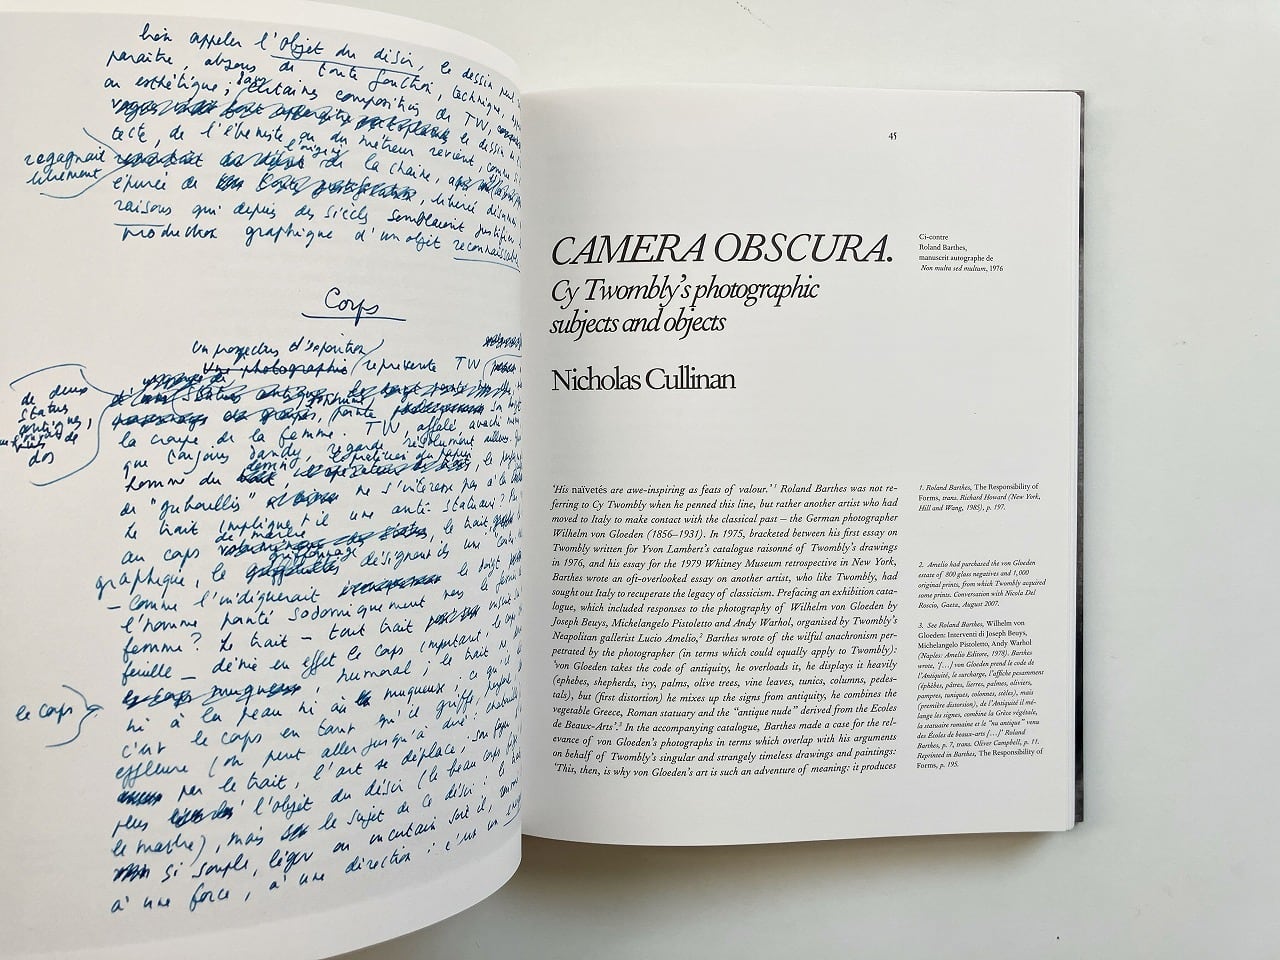 bien appeler l'objet du désir, le dessin peut
paraître, absous de toute fonction, technique,
ou esthétique; dans certaines compositions de TW,
le dessin
tecte, de l'ébéniste ou du métreur revient, comme
regagnait
librement
l'origine de la chaîne,
épurée de libérée désormais
raisons qui depuis des siècles semblaient justifier
production graphique d'un objet reconnaissable
Corps
un prospectus d'exposition
Une photographie représente TW
de deux
status
antiques,
de
dos
la croupe de la femme. TW, affalé
que toujours dandy, regarde résolument ailleurs.
homme du
de "gribouillis" ne s'intéresse pas à la
Le trait implique-t-il une anti-statuaire?
au corps le trait,
graphique, le griffonnage désignent-ils une
– comme l'indiquerait le doigt
l'homme pointé sodomiquement vers le
femme? Le trait – tout trait
feuille – dénie en effet le corps important, le corps
humoral; le trait ne
le corps
ni à la peau ni aux muqueuses; ce qu'il
c'est le corps en tant qu'il griffe,
effleure (on peut aller jusqu'à dire: chatouille
par le trait, l'art se déplace; son foyer
plus l'objet du désir (le beau corps
le marbre), mais le sujet de ce désir: le
si souple, léger ou incertain soit-il,
à une force, à une direction: c'est un
45
CAMERA OBSCURA.
Cy Twombly's photographic
subjects and objects
Nicholas Cullinan
Ci-contre
Roland Barthes,
manuscrit autographe de
Non multa sed multum, 1976
'His naïvetés are awe-inspiring as feats of valour.'¹ Roland Barthes was not re-
ferring to Cy Twombly when he penned this line, but rather another artist who had
moved to Italy to make contact with the classical past – the German photographer
Wilhelm von Gloeden (1856–1931). In 1975, bracketed between his first essay on
Twombly written for Yvon Lambert's catalogue raisonné of Twombly's drawings
in 1976, and his essay for the 1979 Whitney Museum retrospective in New York,
Barthes wrote an oft-overlooked essay on another artist, who like Twombly, had
sought out Italy to recuperate the legacy of classicism. Prefacing an exhibition cata-
logue, which included responses to the photography of Wilhelm von Gloeden by
Joseph Beuys, Michelangelo Pistoletto and Andy Warhol, organised by Twombly's
Neapolitan gallerist Lucio Amelio,² Barthes wrote of the wilful anachronism per-
petrated by the photographer (in terms which could equally apply to Twombly):
'von Gloeden takes the code of antiquity, he overloads it, he displays it heavily
(ephebes, shepherds, ivy, palms, olive trees, vine leaves, tunics, columns, pedes-
tals), but (first distortion) he mixes up the signs from antiquity, he combines the
vegetable Greece, Roman statuary and the "antique nude" derived from the Ecoles
de Beaux-Arts'.³ In the accompanying catalogue, Barthes made a case for the rel-
evance of von Gloeden's photographs in terms which overlap with his arguments
on behalf of Twombly's singular and strangely timeless drawings and paintings:
'This, then, is why von Gloeden's art is such an adventure of meaning: it produces
1. Roland Barthes, The Responsibility of
Forms, trans. Richard Howard (New York,
Hill and Wang, 1985), p. 197.
2. Amelio had purchased the von Gloeden
estate of 800 glass negatives and 1,000
original prints, from which Twombly acquired
some prints. Conversation with Nicola Del
Roscio, Gaeta, August 2007.
3. See Roland Barthes, Wilhelm von
Gloeden: Interventi di Joseph Beuys,
Michelangelo Pistoletto, Andy Warhol
(Naples: Amelio Editore, 1978). Barthes
wrote, '[...] von Gloeden prend le code de
l'Antiquité, le surcharge, l'affiche pesamment
(éphèbes, pâtres, lierres, palmes, oliviers,
pampres, tuniques, colonnes, stèles), mais
(première distorsion), de l'Antiquité il mé-
lange les signes, combine la Grèce végétale,
la statuaire romaine et le "nu antique" venu
des Écoles de beaux-arts [...]' Roland
Barthes, p. 7, trans. Oliver Campbell, p. 11.
Reprinted in Barthes, The Responsibility of
Forms, p. 195.